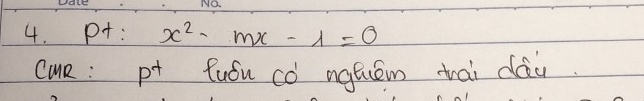 Date No.
4. pt: x² - mx - 1 = 0
CMR: pt luôn có nghiệm trái dấu.